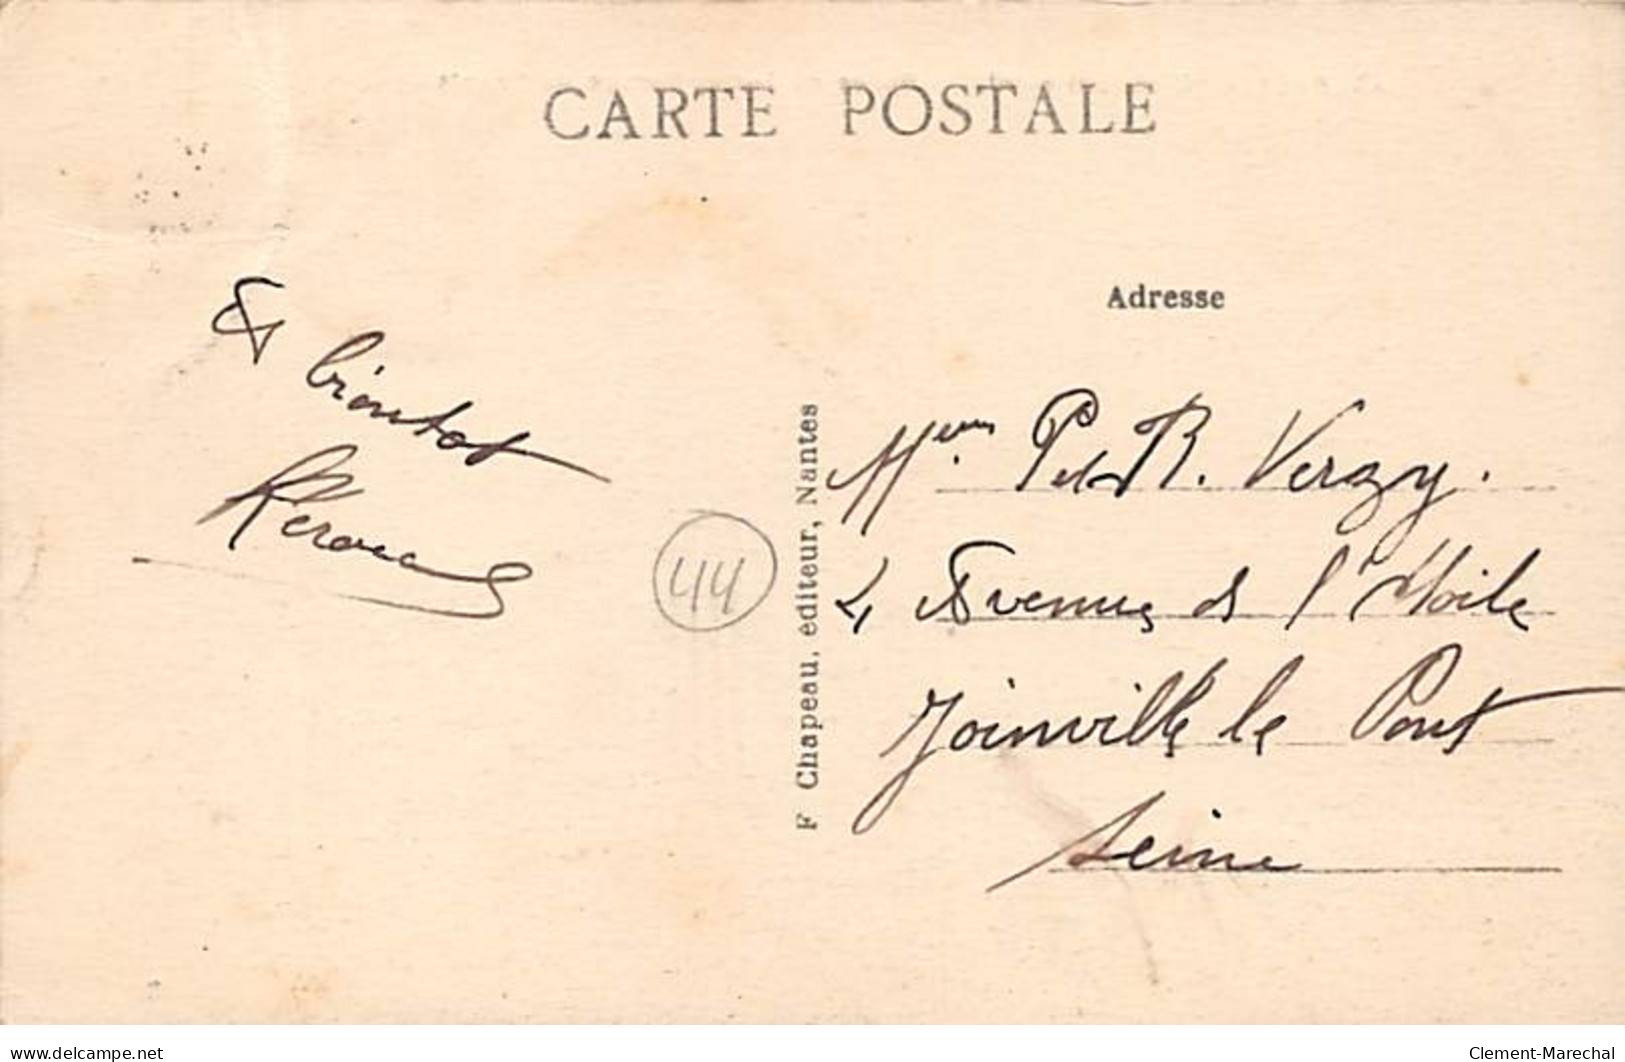 CARTE POSTALE
Adresse
bientot
44
F Chapeau, éditeur, Nantes
P et R. Verzy.
4 Avenue de l'Etoile
Joinville le Pont
Seine
www.delcampe.net
Clement-Marechal